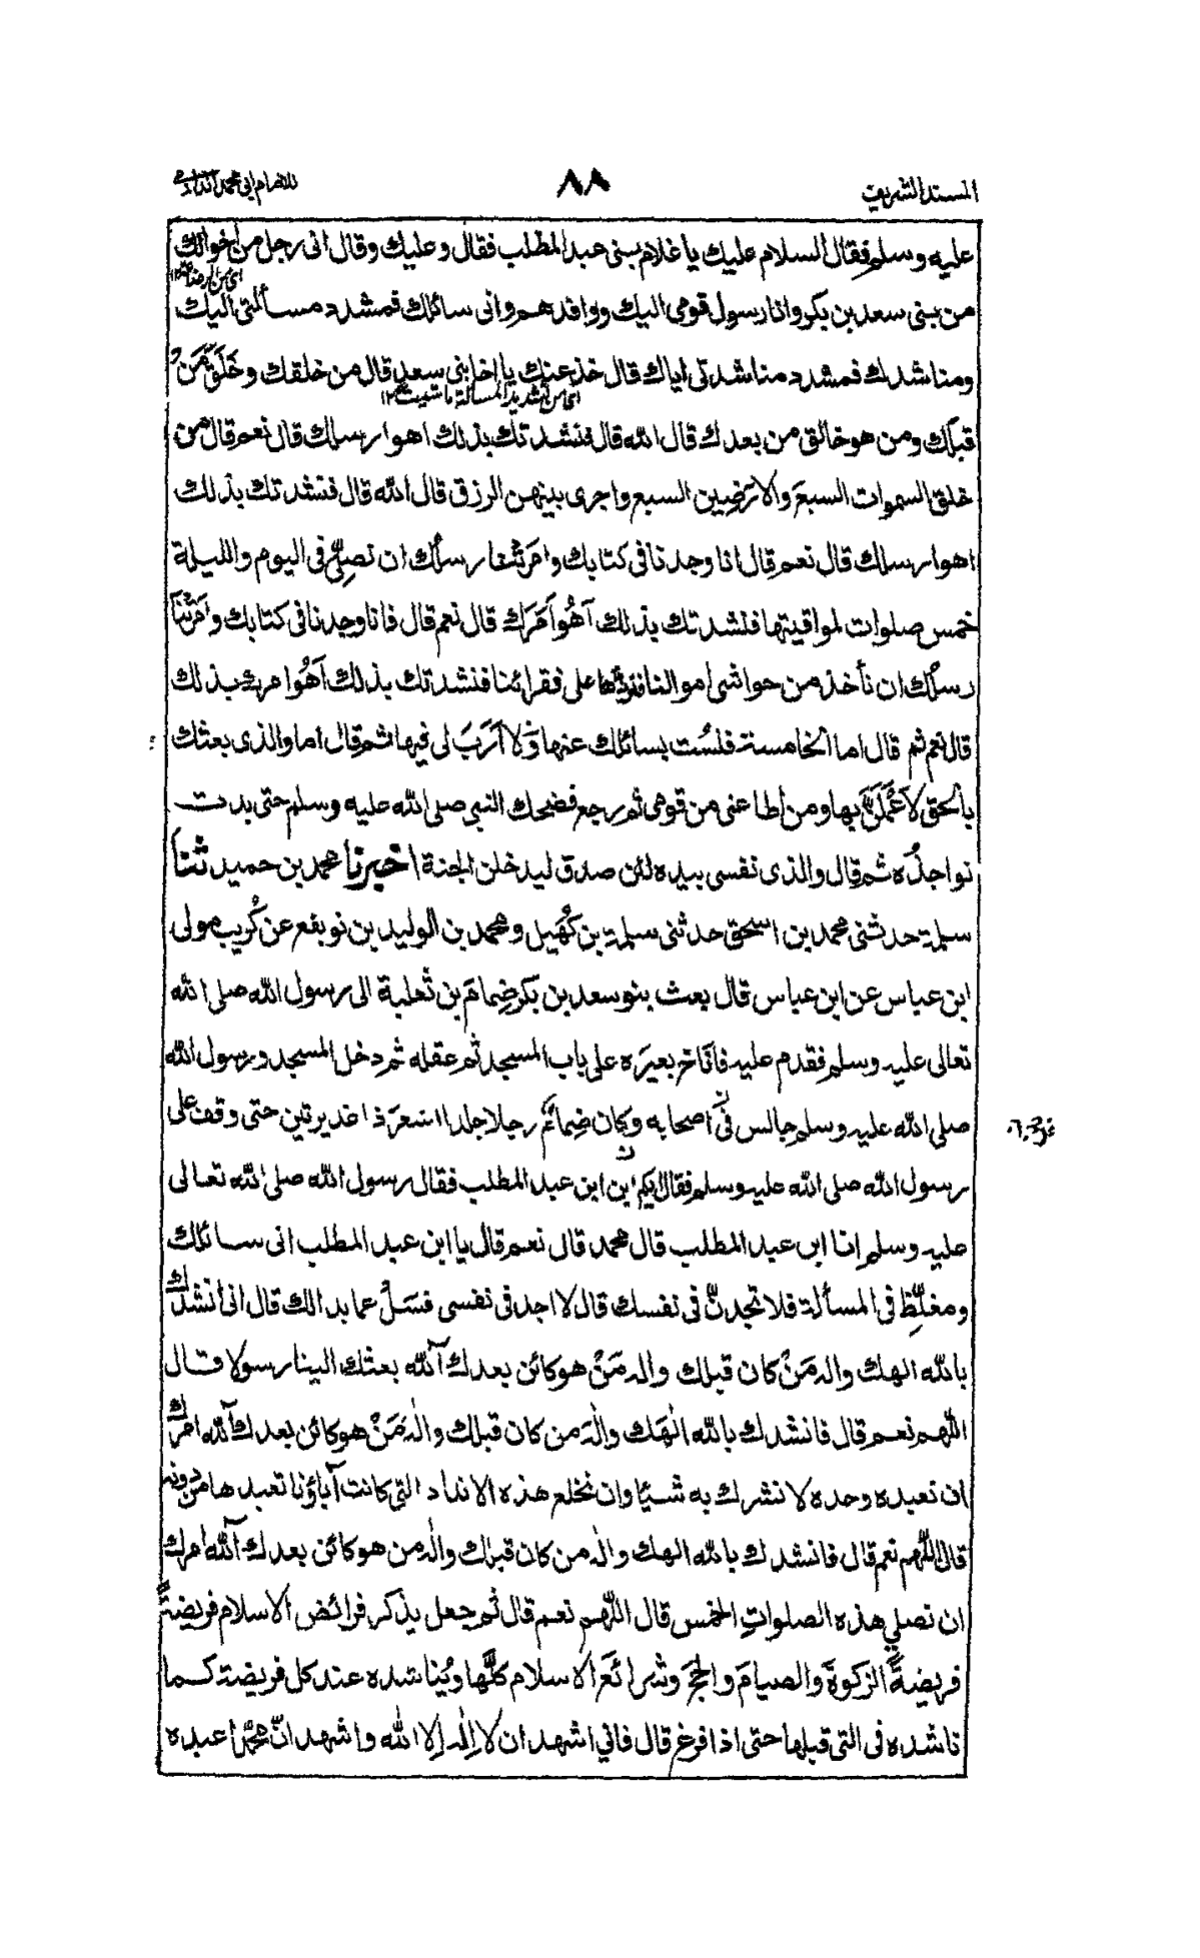 المسند الشريف
٨٨
للامام ابي محمد الدارمي
عليه وسلم فقال السلام عليك يا غلام بنى عبد المطلب فقال وعليك وقال انى رجل من اخوالك
من بنى سعد بن بكر وانا رسول قومى اليك ووافدهم وانى سائلك فمشدد مسألتى اليك
ومناشدك فمشدد مناشدتى اياك قال خذ عنك يا اخا بنى سعد قال من خلقك وخَلَقَ مَنْ
اى من تشديد المسألة ما شيت ١٢
قبلك ومن هو خالق من بعدك قال الله قال فنشدتك بذلك اهو ارسلك قال نعم قال من
خلق السموات السبعَ والارَضِين السبع واجرى بينهن الرزق قال الله قال فنشدتك بذلك
اهو ارسلك قال نعم قال انا وجدنا فى كتابك وامَرَتْنا رسلُك ان نصلِّىَ فى اليوم والليلة
خمس صلوات لمواقيتها فنشدتك بذلك آهُوَ اَمَرَك قال نعم قال فانا وجدنا فى كتابك وامَرَتْنا
رسلُك ان نأخذ من حواشى اموالنا فنردّها على فقرائنا فنشدتك بذلك اَهُوَ امرك بذلك
قال نعم ثم قال اما الخامسة فلستُ بسائلك عنها وَلا اَرَبَ لى فيها ثم قال اما والذى بعثك
بالحق لاَعْمَلَنَّ بها ومن اطاعنى من قومى ثم رجع فضحك النبى صلى الله عليه وسلم حتى بدت
نواجذُه ثم قال والذى نفسى بيده لئن صدق ليدخلن الجنة اخبرنا محمد بن حميد ثنا
سلمة حدثنى محمد بن اسحق حدثنى سلمة بن كُهَيل ومحمد بن الوليد بن نويفع عن كُريب مولى
ابن عباس عن ابن عباس قال بعث بنو سعد بن بكر ضِمامَ بن ثعلبة الى رسول الله صلى الله
تعالى عليه وسلم فقدم عليه فاناخ بعيرَه على باب المسجد ثم عقله ثم دخل المسجد ورسول الله
صلى الله عليه وسلم جالس فى اصحابه وكان ضِمامٌ رجلا جلدا اشعرَ ذا غديرتين حتى وقف على
رسول الله صلى الله عليه وسلم فقال ايكم ابن ابن عبد المطلب فقال رسول الله صلى الله تعالى
عليه وسلم انا ابن عبد المطلب قال محمد قال نعم قال يا ابن عبد المطلب انى سائلك
ومغلِّظ فى المسألة فلا تجدنَّ فى نفسك قال لا اجد فى نفسى فسَلْ عما بدا لك قال انى انشدك
بالله الهك واله مَنْ كان قبلك واله مَنْ هو كائن بعدك آلله بعثك الينا رسولا قال
اللهم نعم قال فانشدك بالله الٰهك والٰهَ من كان قبلك والٰهَ مَنْ هو كائن بعدك آلله امرك
ان نعبده وحده لا نشرك به شيئا وان نخلع هذه الانداد التى كانت آباؤنا تعبدها من دونه
قال اللهم نعم قال فانشدك بالله الهك واله من كان قبلك والٰه من هو كائن بعدك آلله امرك
ان نصلي هذه الصلواتِ الخمس قال اللهم نعم قال ثم جعل يذكر فرائض الاسلام فريضةً
فريضةً الزكوةَ والصيامَ والحجَ وشرائعَ الاسلام كلَّها ويُناشده عند كل فريضة كما
ناشده فى التى قبلها حتى اذا فرغ قال فاني اشهد ان لا اله الا الله واشهد انّ محمدًا عبده